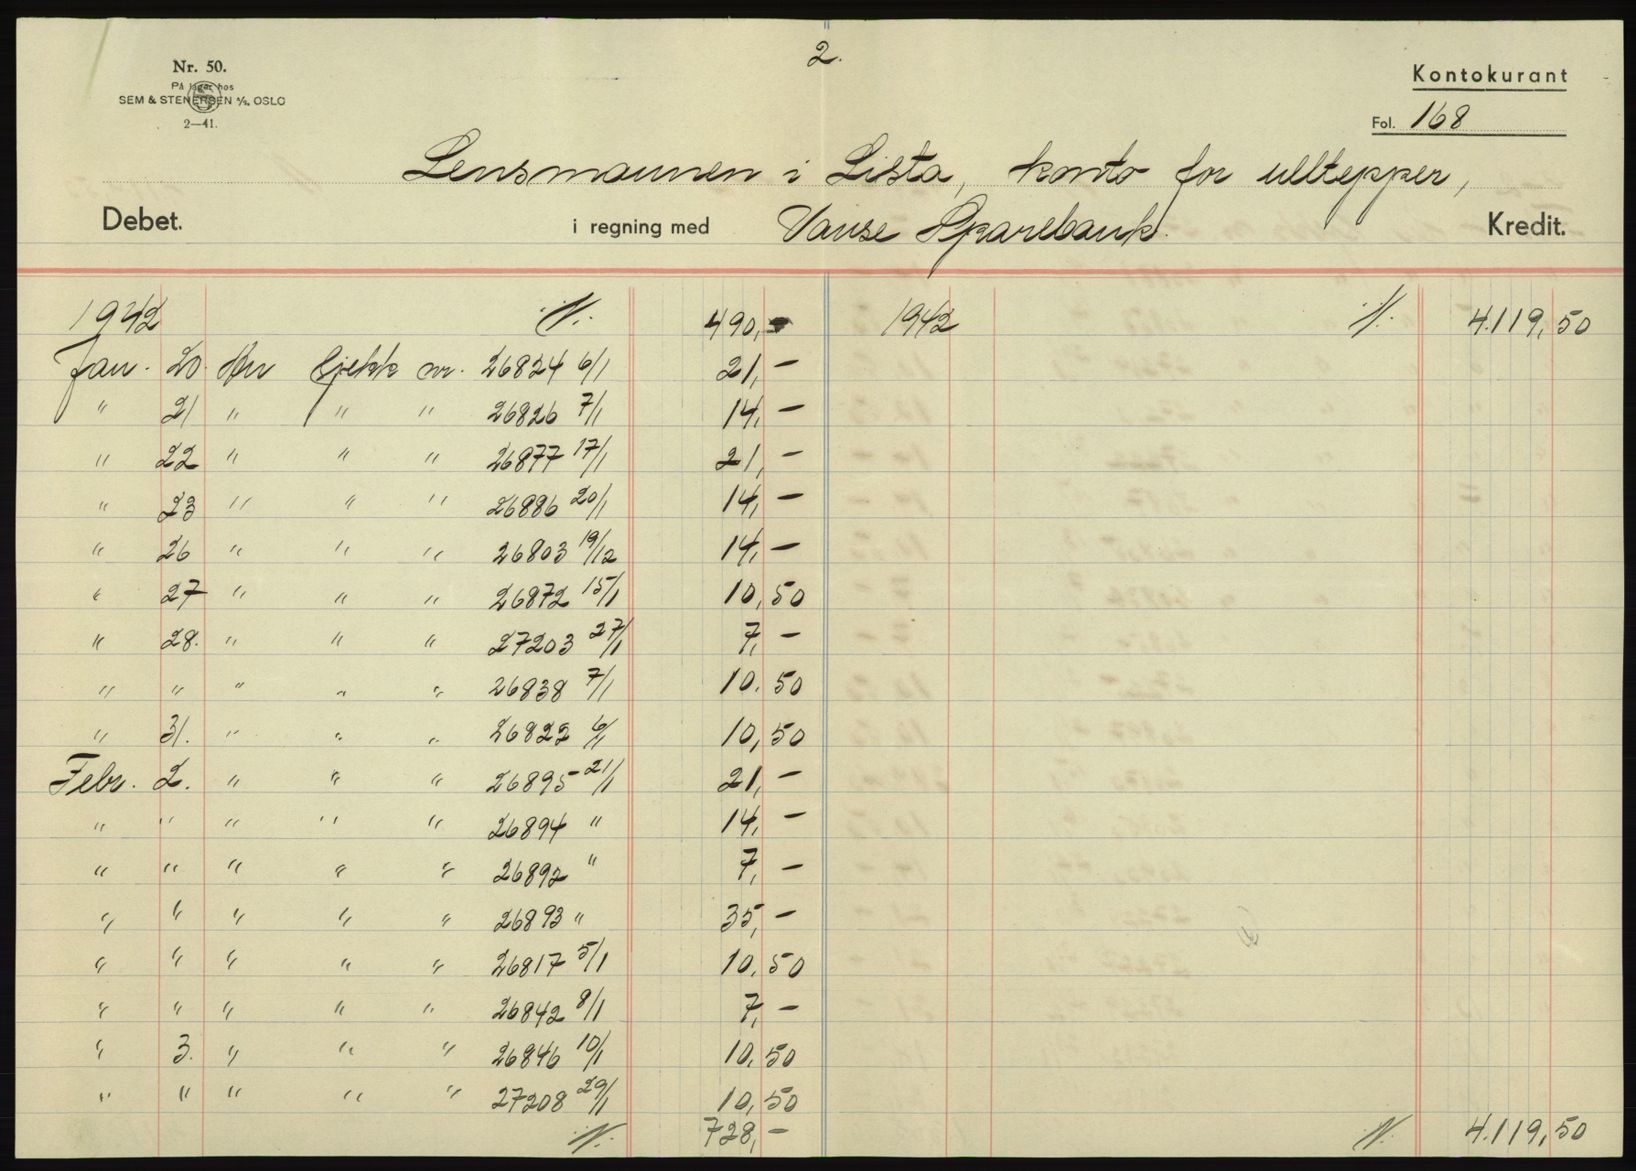 2.
Nr. 50.
På lager hos
SEM & STENERSEN A/S, OSLO
2—41.
Kontokurant
Fol. 168
Lensmannen i Lista, konto for ulltepper,
Debet. i regning med Vanse Sparebank. Kredit.
1942 ·/· 490,- 1942 ·/· 4.119,50
Jan. 20. An sjekk nr. 26824 6/1 21,-
" 21 " " " 26826 7/1 14,-
" 22 " " " 26877 17/1 21,-
" 23 " " " 26886 20/1 14,-
" 26 " " " 26803 19/12 14,-
" 27 " " " 26872 15/1 10,50
" 28. " " " 27203 27/1 7,-
" " " " " 26838 7/1 10.50
" 31. " " " 26822 6/1 10,50
Febr. 2. " " " 26895 21/1 21,-
" " " " " 26894 " 14,-
" " " " " 26892 " 7,-
" " " " " 26893 " 35,-
" " " " " 26817 5/1 10,50
" " " " " 26842 8/1 7,-
" 3. " " " 26846 10/1 10,50
" " " " " 27208 29/1 10,50
·/· 728,- ·/· 4.119,50